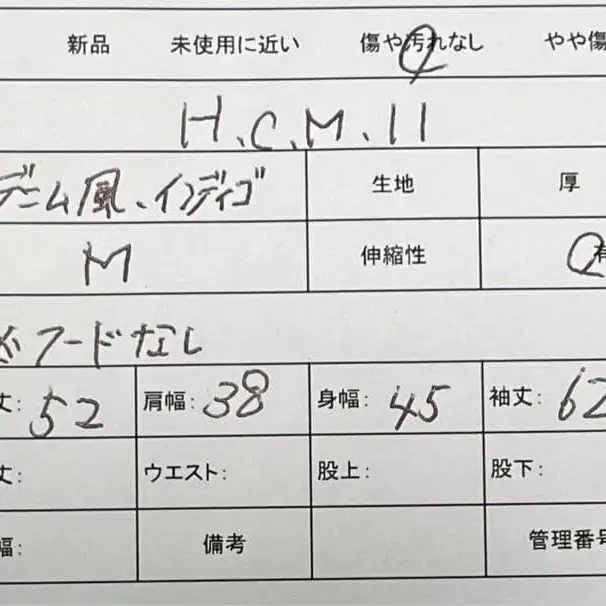 新品 未使用に近い 傷や汚れなし やや傷
H.C.M.11
デニム風、インディゴ 生地 厚
M 伸縮性 有
フードなし
丈: 52 肩幅: 38 身幅: 45 袖丈: 62
丈: ウエスト: 股上: 股下:
幅: 備考 管理番号